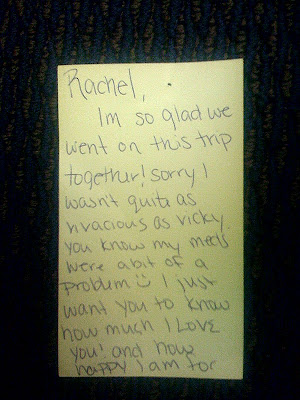 Rachel,
Im so glad we
went on this trip
together! sorry I
wasn't quite as
vivacious as vicky.
you know my meds
were a bit of a
problem I just
want you to know
how much I Love
you! and how
happy I am for